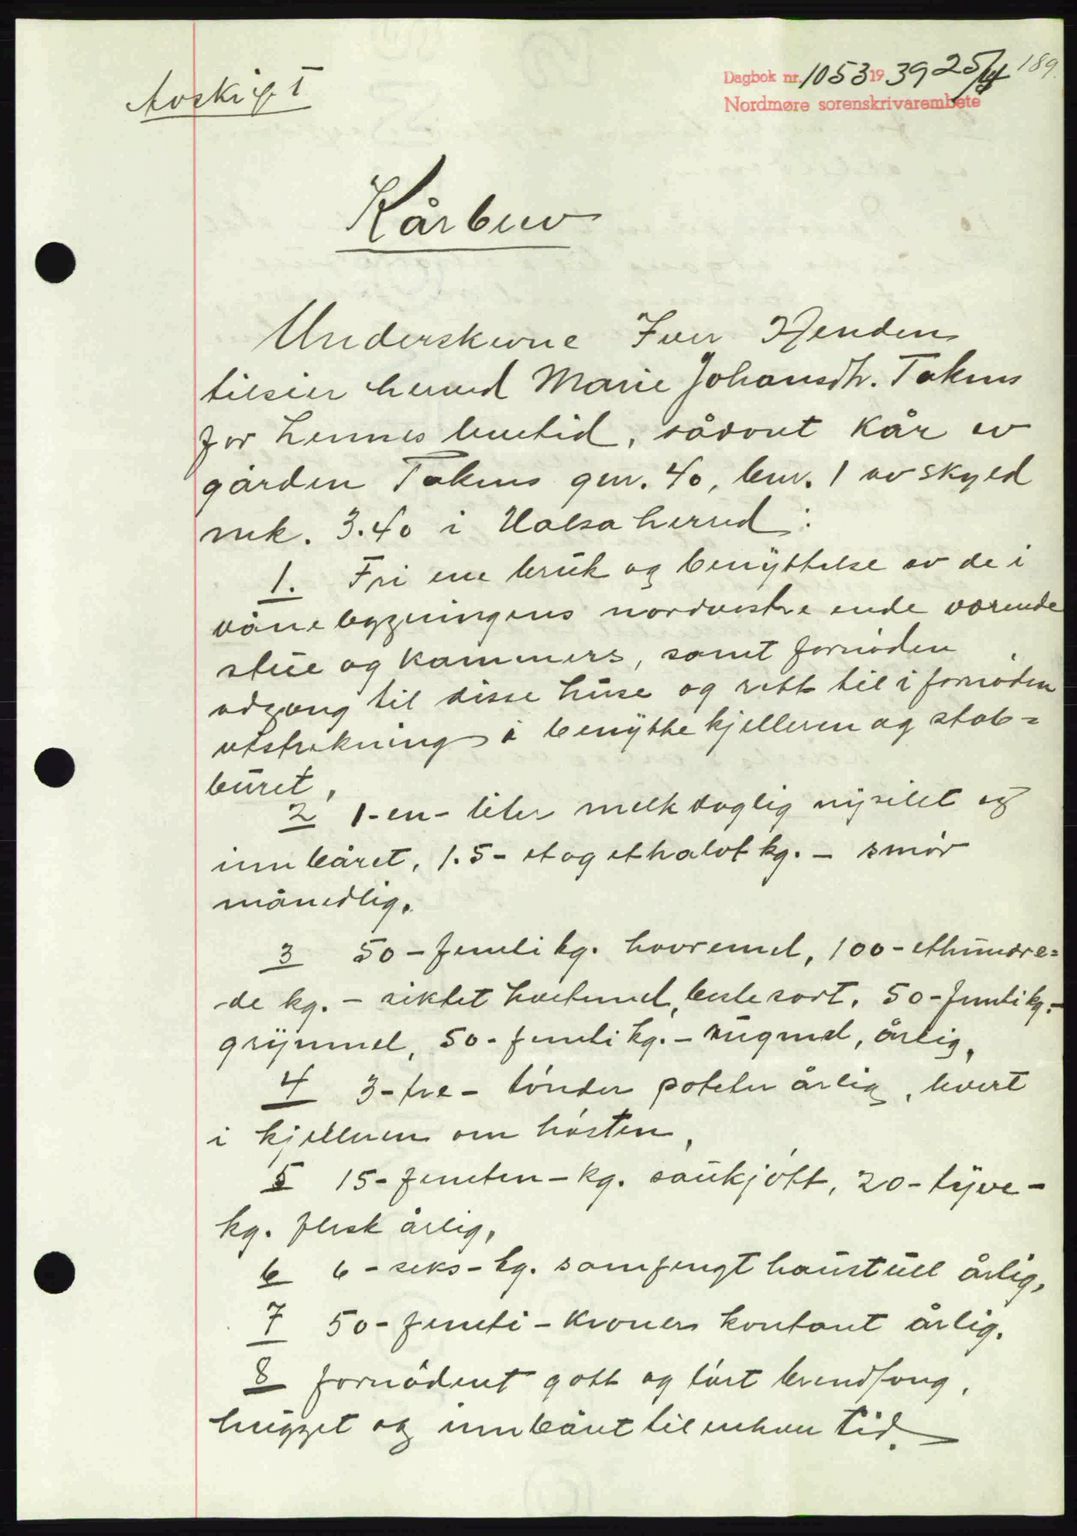 Avskrift
Dagbok nr. 1053 1939 25/4 189.
Nordmøre sorenskrivarembete
Kårbrev
Underskrevne Iver Henden
tilsier herved Marie Johansdtr. Taknes
for hennes levetid, sådant kår av
gården Taknes gnr. 40, bnr. 1 av skyld
mrk. 3.40 i Halsa herred:
1. Fri ene bruk og benyttelse av de i
våne bygningens nordvestre ende værende
stue og kammers, samt fornøden
adgang til disse huse og rett til i fornøden
utstrekning å benytte kjelleren og stab=
buret.
2 1-en- liter melk daglig nysilet og
innbåret, 1.5- et og et halvt kg. - smør
månedlig.
3 50-femti kg. havremel, 100-ethundre=
de kg. - siktet hvetemel, beste sort, 50-femti kg.-
grynmel, 50-femti kg.- rugmel, årlig.
4 3-tre- tønder poteter årlig, levert
i kjelleren om høsten.
5 15-femten-kg. saukjøtt, 20-tyve-
kg. flesk årlig.
6 6-seks-kg. samfengt haustull årlig.
7 50-femti-kroner kontant årlig.
8 fornødent godt og tørt brendfang,
hugget og innbåret til enhver tid.